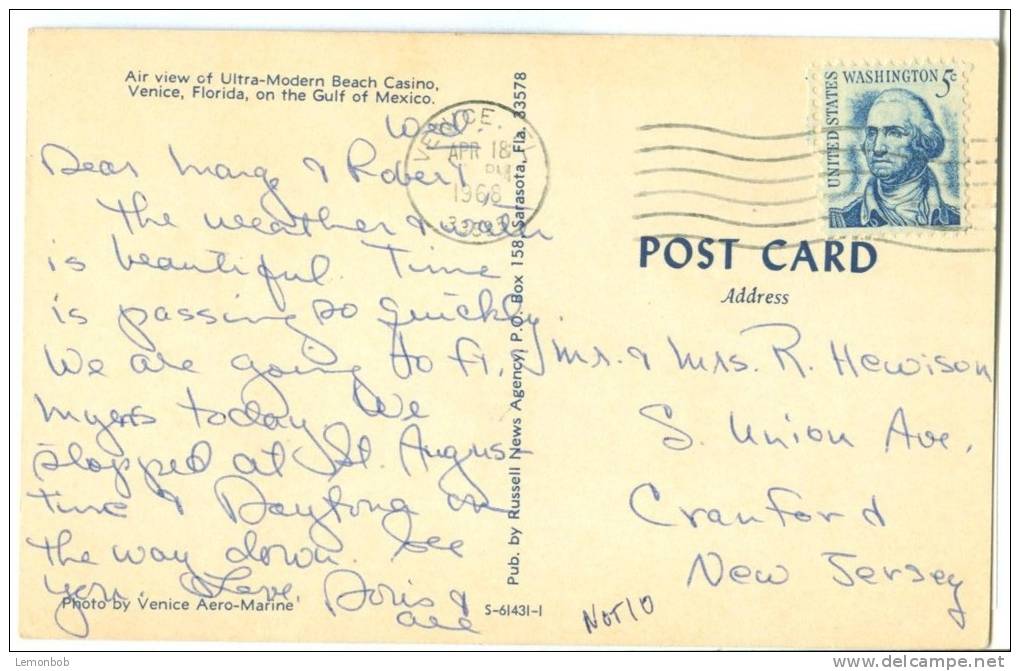 Air view of Ultra-Modern Beach Casino,
Venice, Florida, on the Gulf of Mexico.
Wed.
Dear Marg & Robert
The weather & water
is beautiful. Time
is passing so quickly.
We are going to Ft.
Myers today. We
stopped at St. Augus-
tine & Daytona on
the way down. See
you. Love, Doris &
all
Photo by Venice Aero-Marine
S-61431-1
Pub. by Russell News Agency, P.O. Box 158, Sarasota, Fla. 33578
VENICE, FL
APR 18
PM
1968
UNITED STATES
WASHINGTON 5c
POST CARD
Address
Mr. & Mrs. R. Hewison
S. Union Ave.
Cranford
New Jersey
NOT10
Lemonbob
delcampe.net